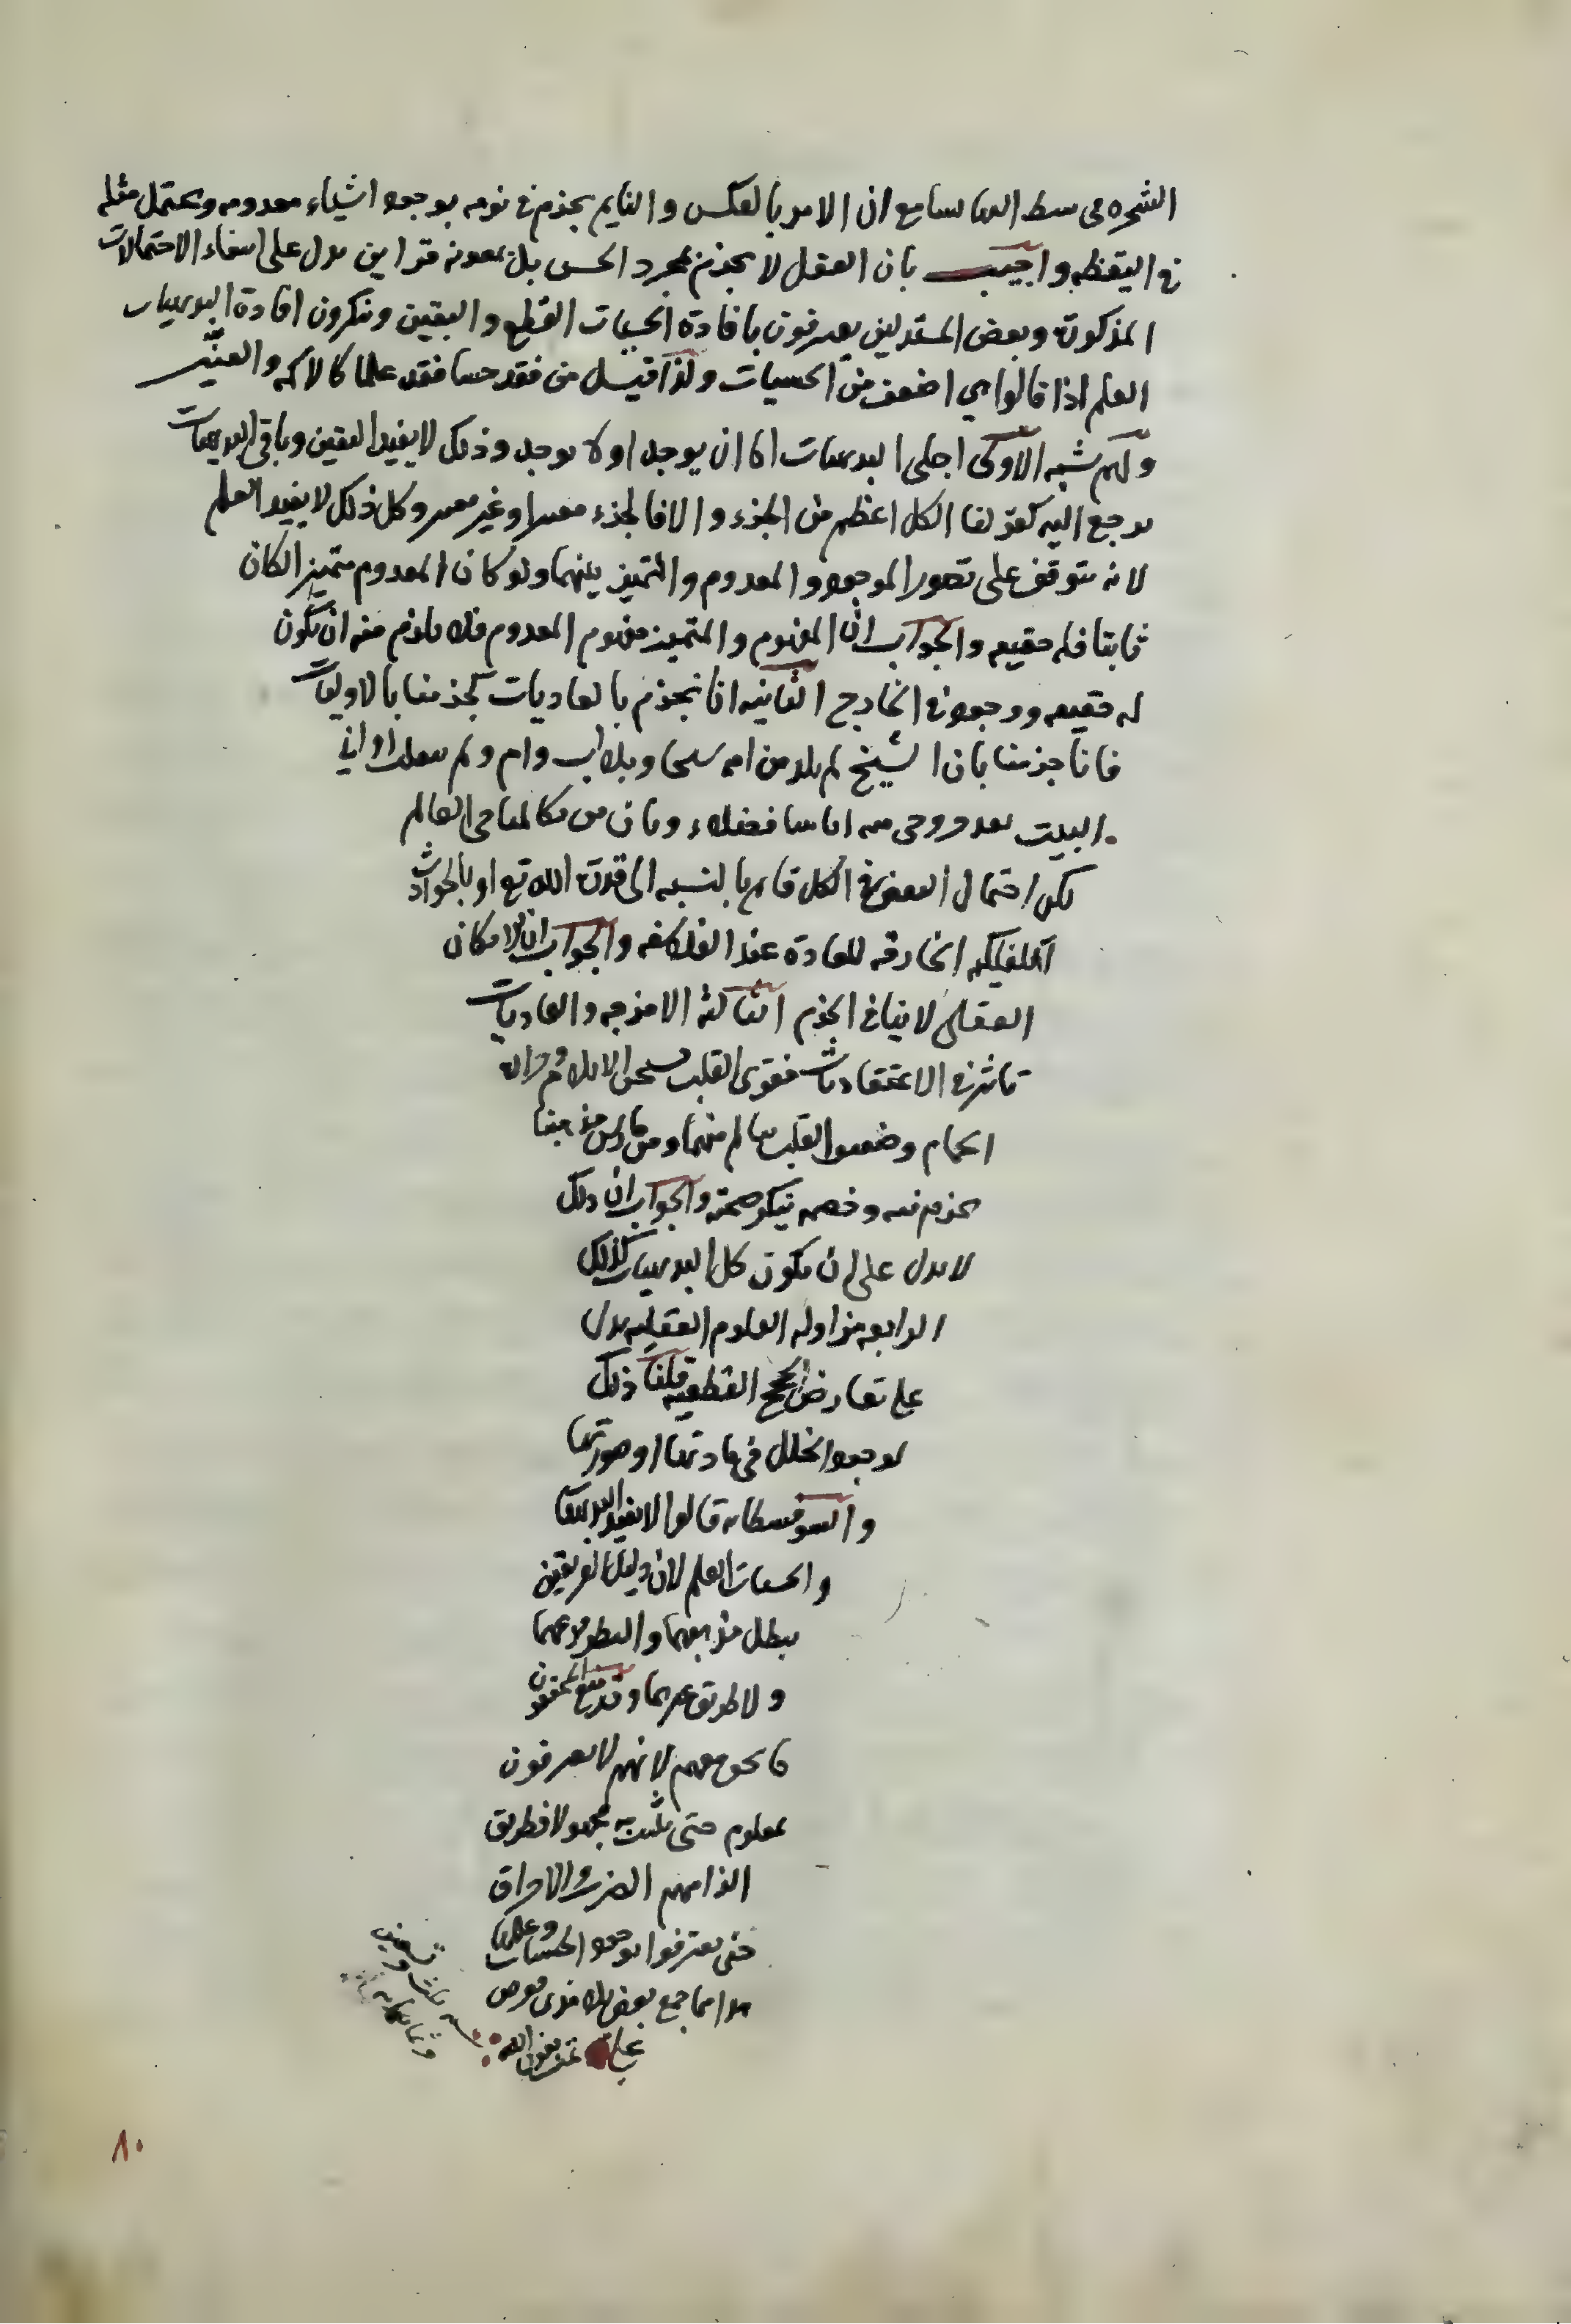 الشجره في شط النهر سامع ان الامر بالعكس والنايم يجزم في نومه بوجود اشياء معدومه ويحتمل مثله
في اليقظه واجيب بان العقل لا يجزم بمجرد الحس بل بمعونه قراين تدل على انتفاء الاحتمالات
المذكورة وبعض المستدلين يعترفون بافادة الحسيات القطع واليقين وينكرون افادة البديهيات
العلم اذا قالوا هي اضعف من الحسيات ولذا قيل من فقد حسا فقد علما كالاكمه والعنين
ولهم شبه الاولى اجلى البديهيات اما ان يوجد او لا يوجد وذلك لا يفيد اليقين وباقي البديهيات
يرجع اليه كقولنا الكل اعظم من الجزء والا فالجزء معتبر او غير معتبر وكل ذلك لا يفيد العلم
لانه يتوقف على تصور الموجود والمعدوم والتميز بينهما ولو كان المعدوم متميز الكان
ثابتا فله حقيقه والجواب ان المفهوم والمتميز مفهوم المعدوم فلا يلزم منه ان يكون
له حقيقه ووجود في الخارج الثانيه انا نجزم بالعاديات كجزمنا بالاوليات
فانا جزمنا بان الشيخ لم يلد من امه شيخا وبلا اب وام ولم ينقلب اواني
البيت بعد خروجي منه اناسا فضلاء وبان من مكالمنا حي العالم
لكن احتمال النقض في الكل قايم بالنسبه الى قدرة الله تع او بالحوادث
الفلكيه الخارقه للعادة عند الفلاسفه والجواب ان الامكان
العقلي لا ينافي الجزم الثالثة الامزجه والعاديات
تاثير في الاعتقاديات فقوى القلب يستحسن الايلام
الحمام وضعيف القلب سالم منهما ومن مارس مذهبا
يجزم فيه وخصمه ينكر صحته والجواب ان ذلك
لا يدل على ان يكون كل البديهيات كذلك
الرابعه مزاوله العلوم العقليه يدل
على تعارض الحجج القطعيه قلنا ذلك
لوجود الخلل في مادتها او صورتها
والسوفسطائيه قالوا لا يفيد البديهيات
والحسيات العلم لان دليل الفريقين
يبطل مذهبهما والنظر فرعهما
ولا طريق غيرهما وقد منع المحققون
معهم لانهم لا يعرفون
بمعلوم حتى يثبت به مجهولا فطريق
الزامهم الضرب والاحراق
حتى يعترفوا بوجود الحسيات وعلمها
هذا مما جمع بعض تلامذي
على تمت بعون الله
سنه ثلث وتسعين
وثمانمائه
٨٠